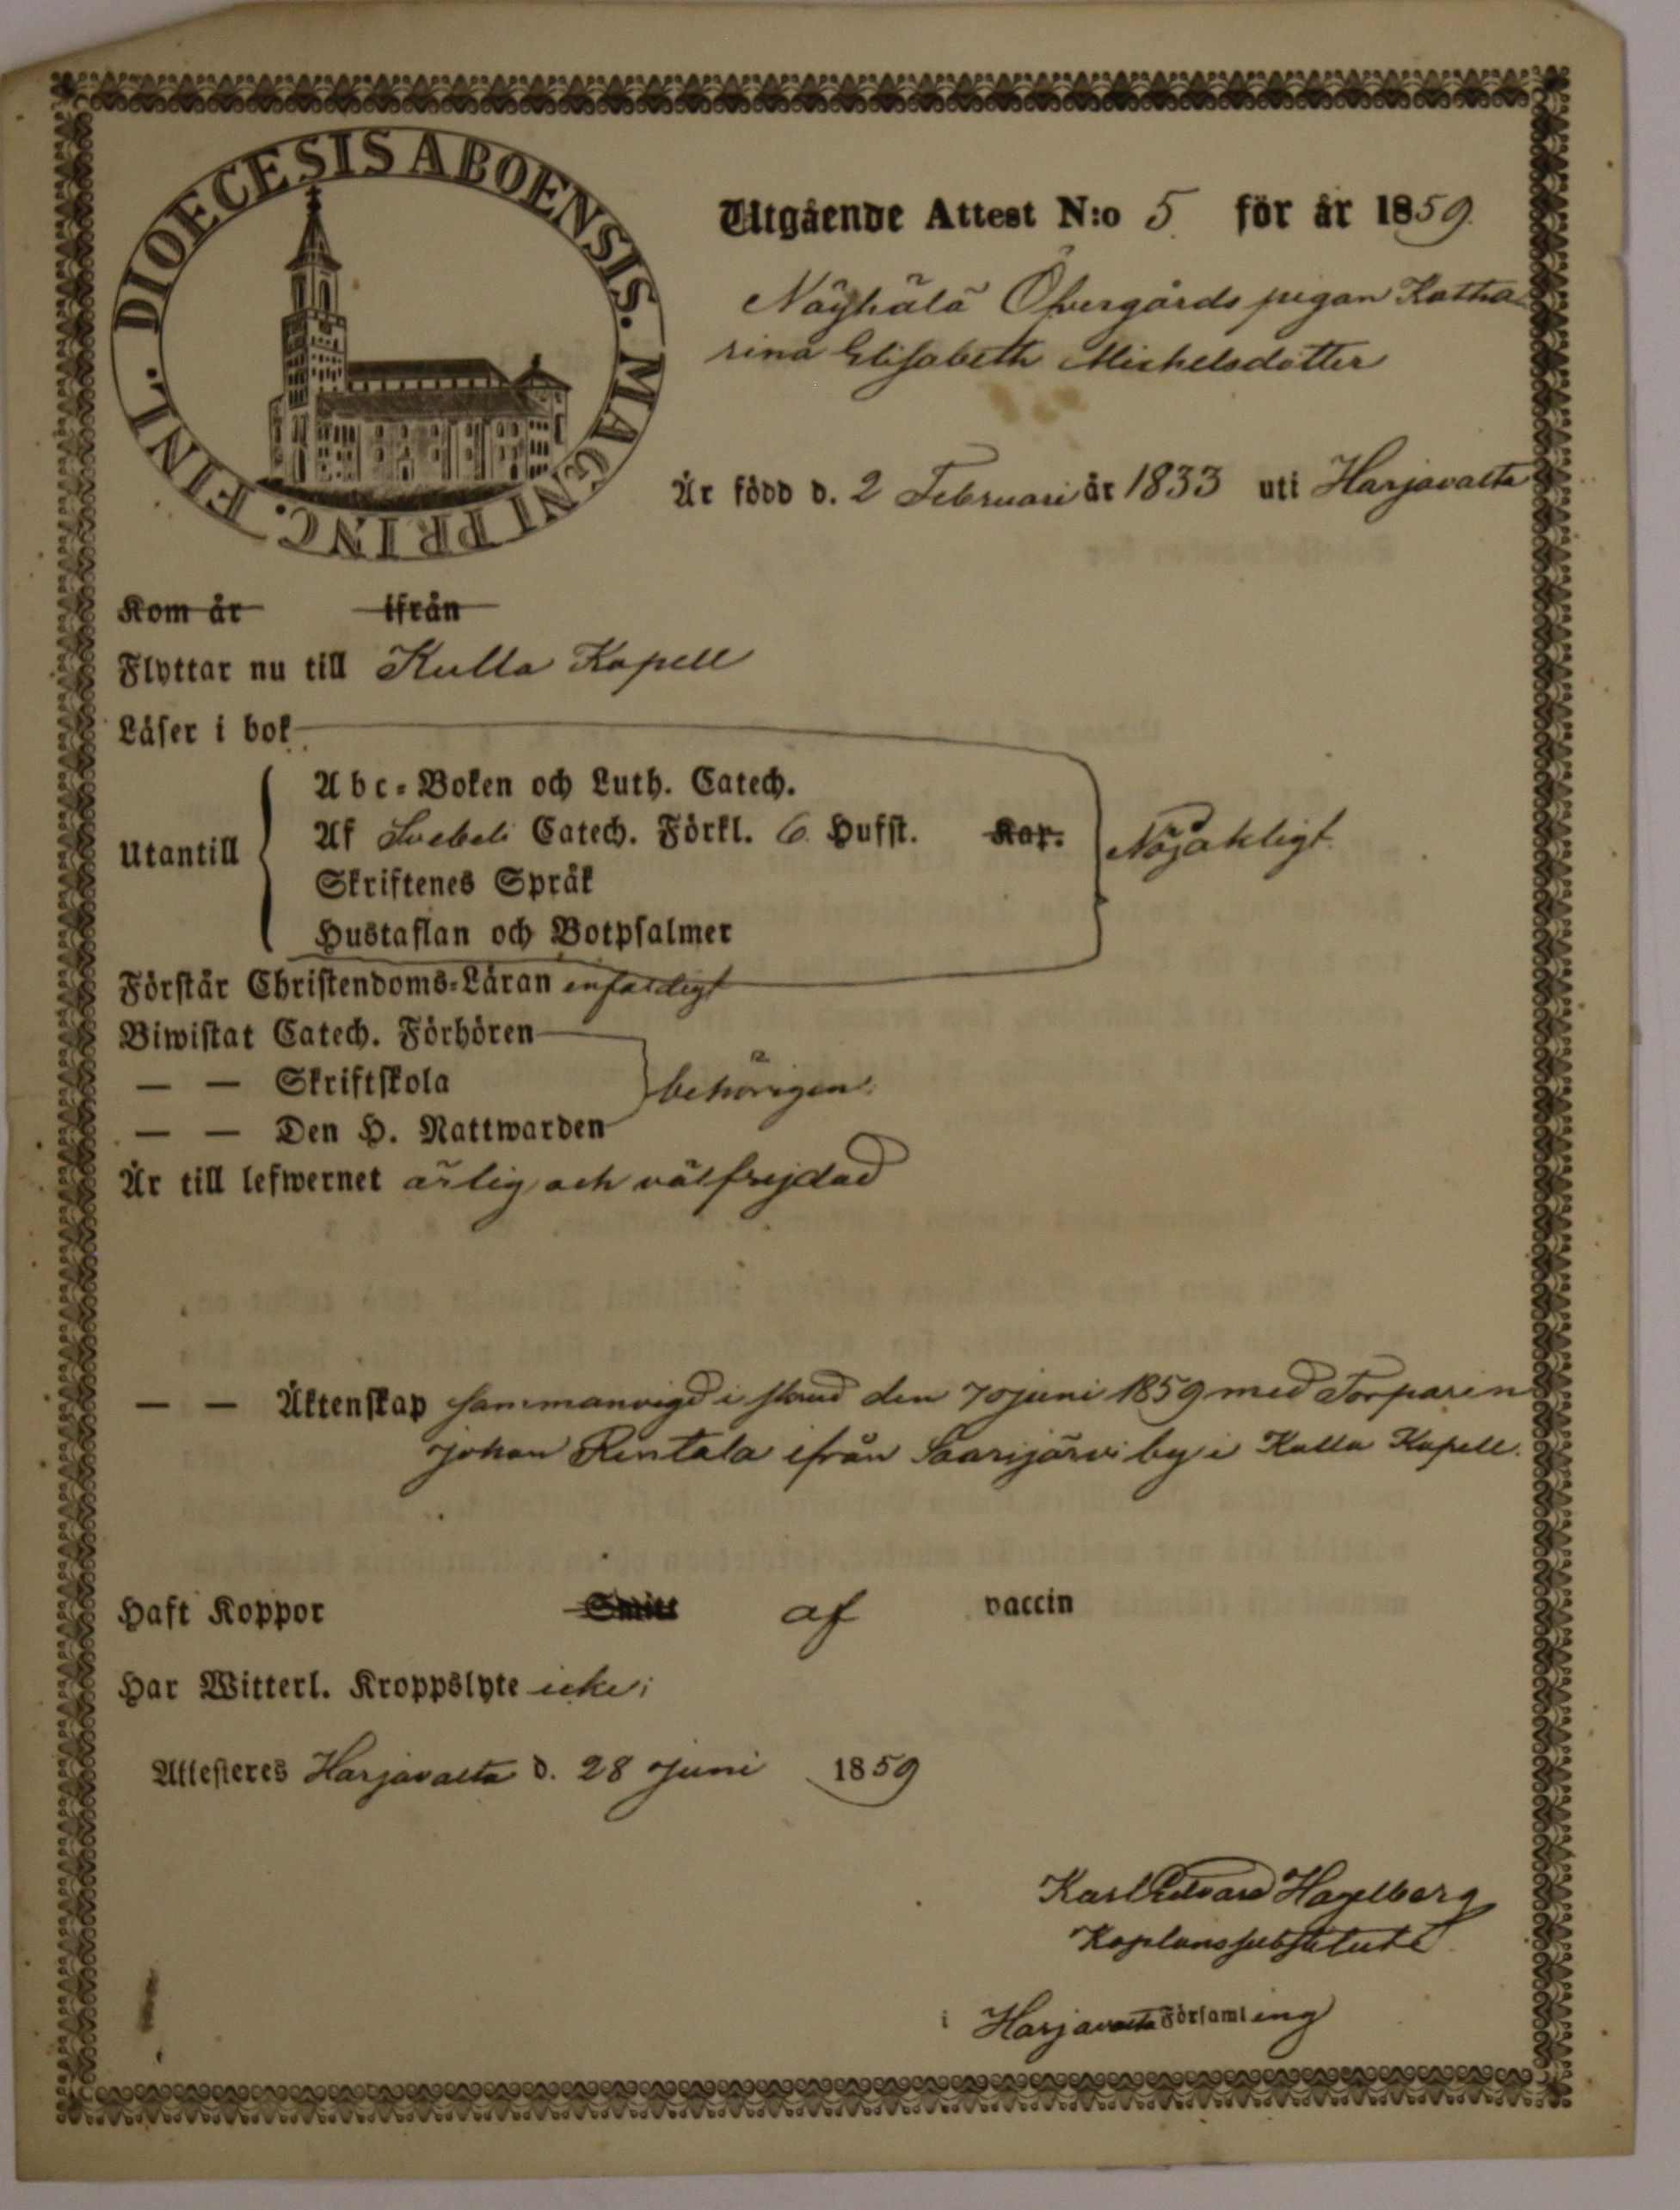 DIOECESIS ABOENSIS. MAGNI PRINC. FINL.
Utgående Attest N:o 5 för år 1859.
Näyhälä Öfvergårds pigan Katha
rina Elisabeth Michelsdotter
Är född d. 2 Februari år 1833 uti Harjavalta
Kom år ifrån
Flyttar nu till Kulla Kapell
Läser i bok
Abc-Boken och Luth. Catech.
Utantill Af Svebeli Catech. Förkl. 6. Hufst. Kap. Nöjaktligt.
Skriftenes Språk
Hustaflan och Botpsalmer
Förstår Christendoms-Läran enfaldigt
Biwistat Catech. Förhören
— — Skriftskola behörigen.
— — Den H. Nattwarden
Är till lefwernet ärlig och välfrejdad
— — Äktenskap sammanvigd i den juni 1859 med Torparen
Johan Rintala ifrån Saarijärvi by i Kulla Kapell.
Haft Koppor Smitt af vaccin
Har Witterl. Kroppslyte icke;
Attesteres Harjavalta d. 28 Juni 1859
Karl Edvard Hagelberg
Kaplans substitut
i Harjavalta Församling